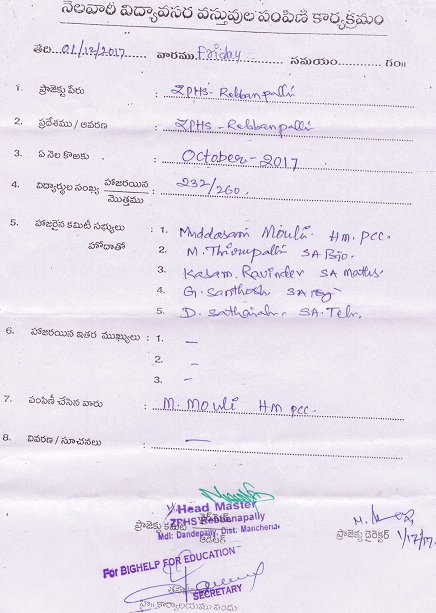 నెలవారీ విద్యావసర వస్తువుల పంపిణీ కార్యక్రమం
తేది..01/12/2017...... వారము Friday......... సమయం............ గం॥
1. ప్రాజెక్టు పేరు : ZPHS - Rebbanpalli
2. ప్రదేశము / ఆవరణ : ZPHS - Rebbanpalli
3. ఏ నెల కొఱకు : October - 2017
4. విద్యార్థుల సంఖ్య హాజరయిన / మొత్తము : 232/260.
5. హాజరైన కమిటీ సభ్యులు : 1. Muddasani Mouli. HM. PCC.
హోదాతో 2. M. Thirupathi SA Bio.
3. Kasam. Ravinder SA Maths
4. G. Santhosh SA
5. D. Sathaiah. SA. Tel.
6. హాజరయిన ఇతర ముఖ్యులు : 1. —
2. —
3. —
7. పంపిణీ చేసిన వారు : M. Mouli HM PCC.
8. వివరణ / సూచనలు : —
Head Master
ZPHS Rebbanapally
Mdl: Dandepally, Dist. Mancherial
ప్రాజెక్టు కమిటీ
ప్రాజెక్టు డైరెక్టర్ 1/12/17
For BIGHELP FOR EDUCATION
SECRETARY